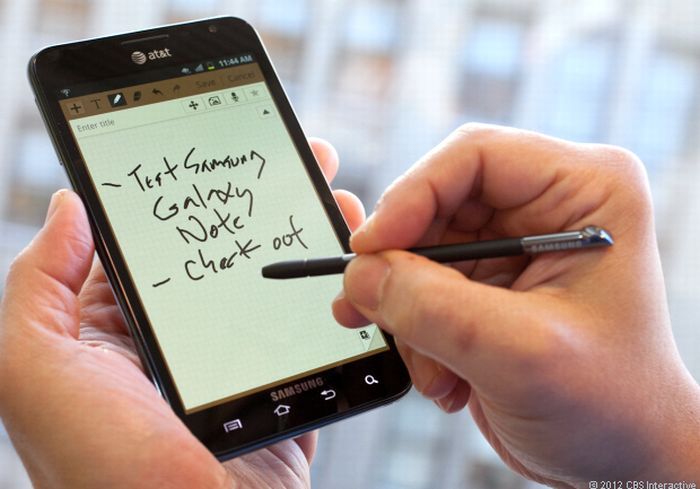 at&t
11:44 AM
T Save Cancel
Enter title
- Test Samsung
Galaxy
Note
- Check out
SAMSUNG
SAMSUNG
© 2012 CBS Interactive